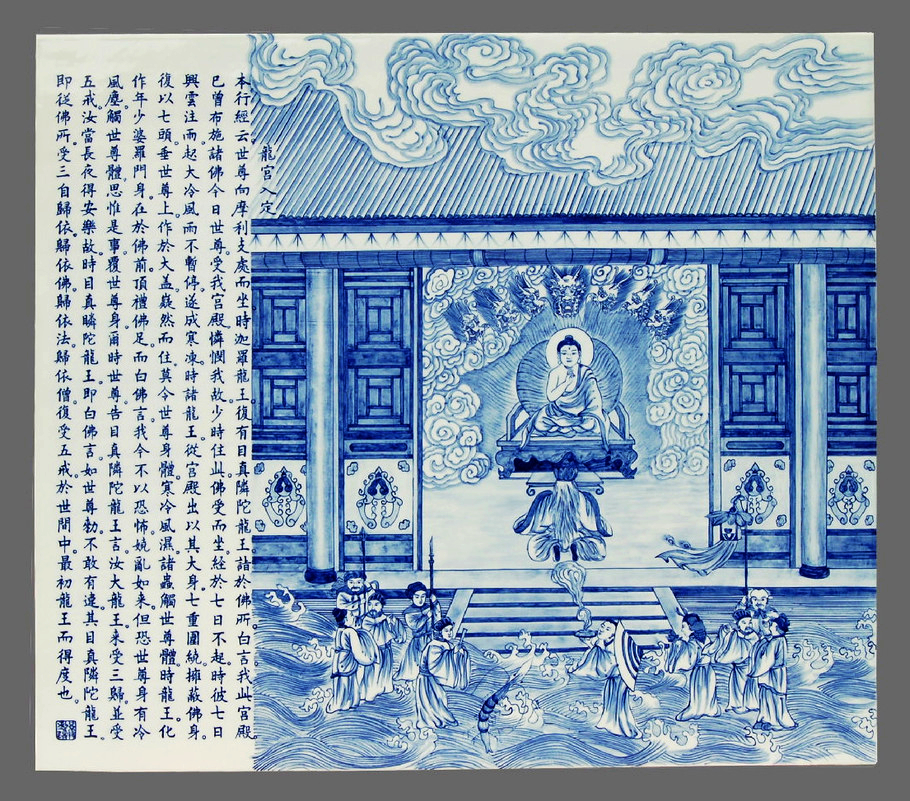 龍宮入定
本行經云世尊向摩利支處而坐時迦羅龍王復有目真隣陀龍王詣於佛所白言我此宮殿
已曾布施諸佛今日世尊受我宮殿憐憫我故少時住此佛受而坐經於七日不起時彼七日
興雲注雨起大冷風而不暫停遂成寒凍時諸龍王從宮殿出以其大身七重圍繞擁蔽佛身
復以七頭垂世尊上作於大蓋嶷然而住莫令世尊身體寒冷風濕諸蟲觸世尊體時龍王化
作年少婆羅門身在於佛前頂禮佛足而白佛言我今不以恐怖嬈亂如来但恐世尊身有冷
風塵觸世尊體思惟是事覆世尊身爾時世尊告目真隣陀龍王言汝大龍王来受三歸並受
五戒汝當長夜得安樂故時目真隣陀龍王即白佛言如世尊勅不敢有違其目真隣陀龍王
即從佛所受三自歸依歸依佛歸依法歸依僧復受五戒於世間中最初龍王而得度也